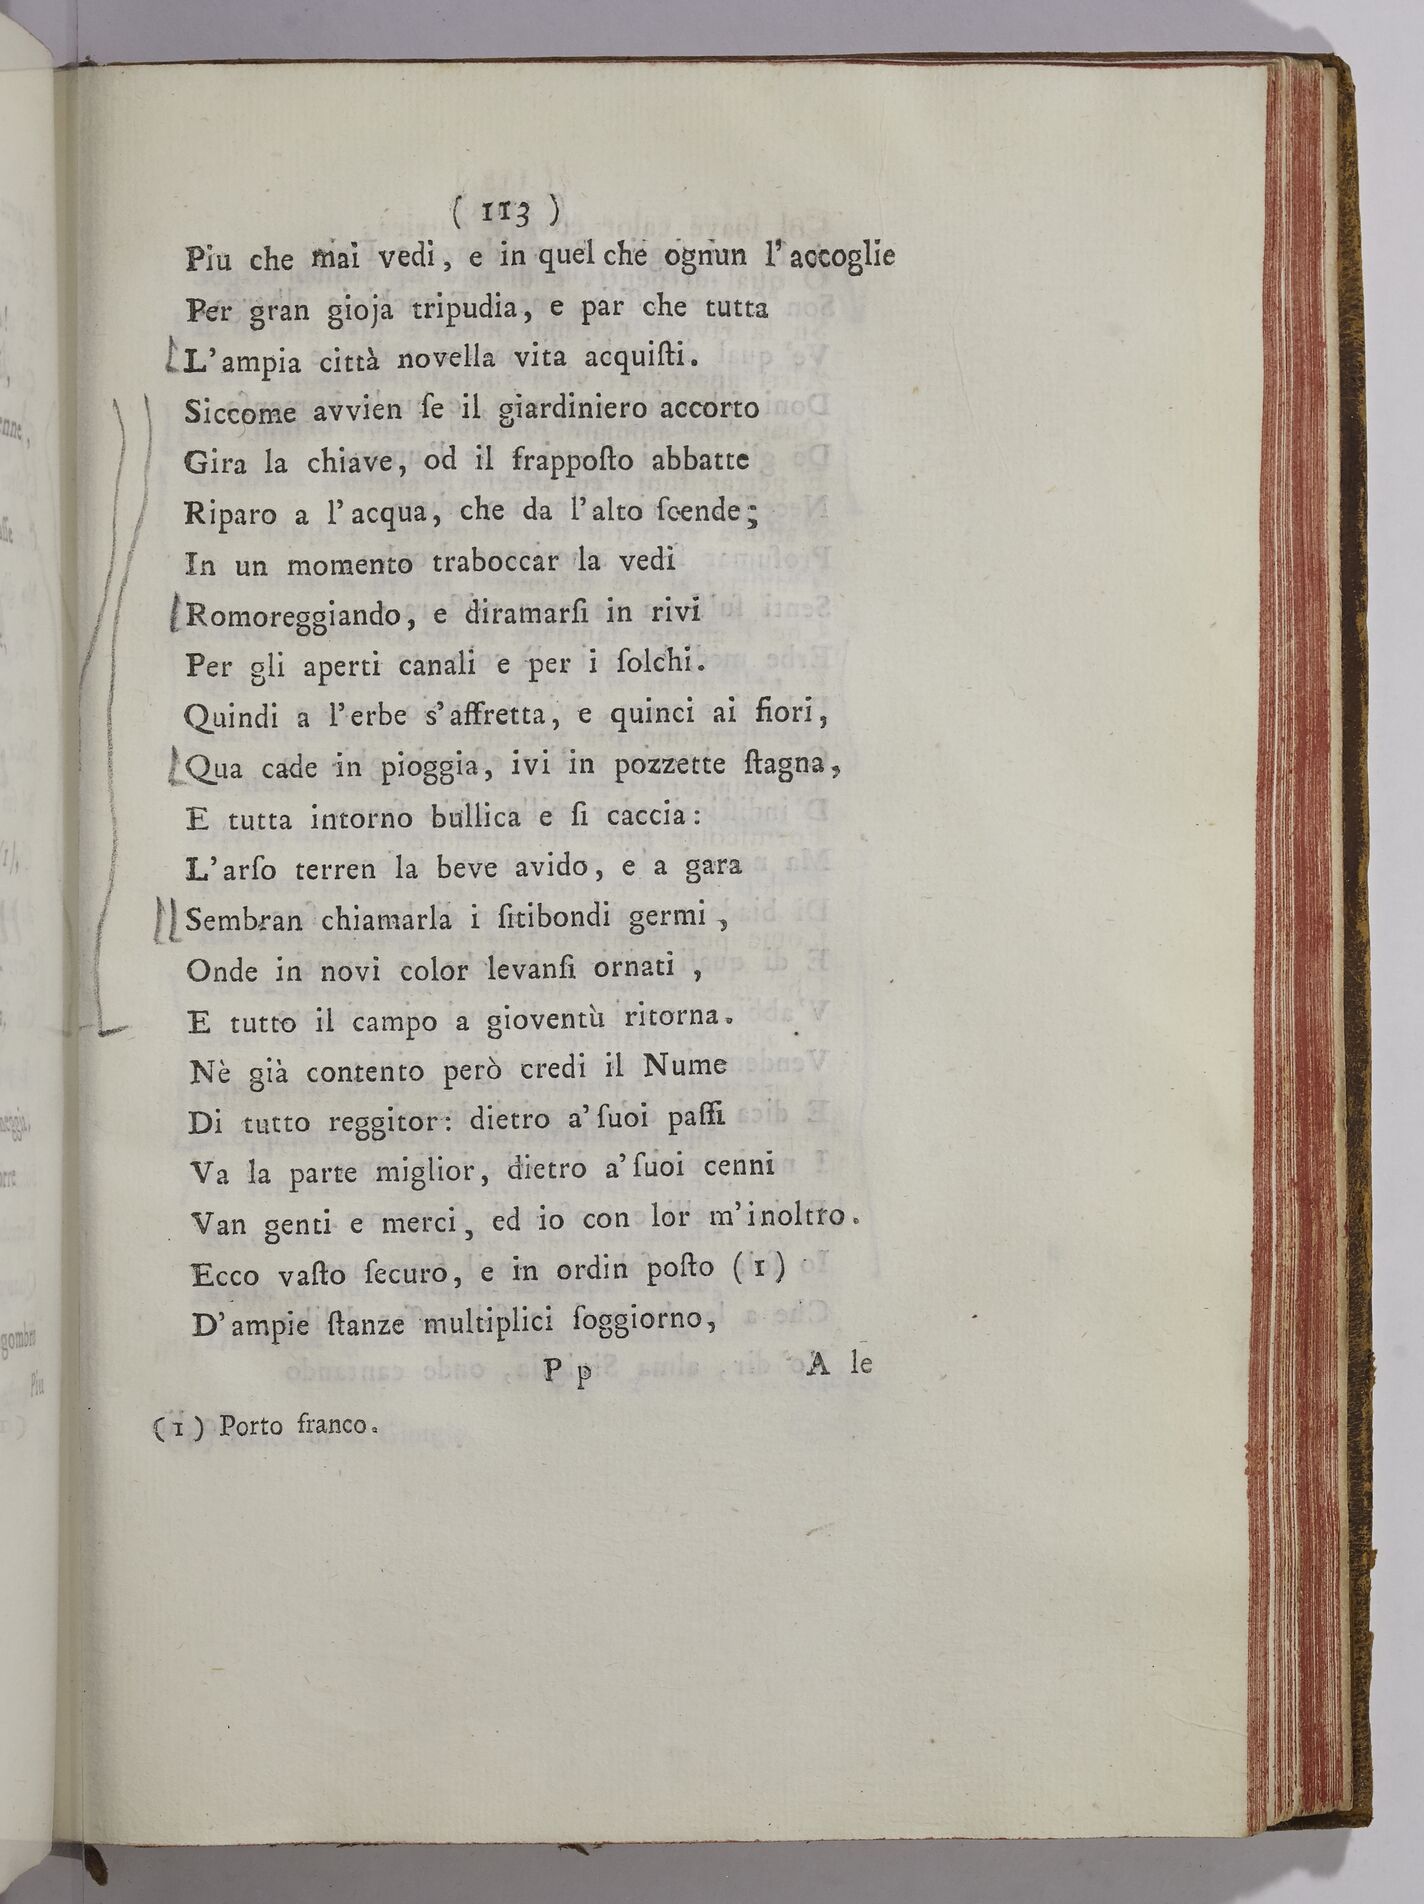 ( 113 )
Piu che mai vedi, e in quel che ognun l'accoglie
Per gran gioja tripudia, e par che tutta
L'ampia città novella vita acquiſti.
Siccome avvien ſe il giardiniero accorto
Gira la chiave, od il frappoſto abbatte
Riparo a l'acqua, che da l'alto ſcende;
In un momento traboccar la vedi
Romoreggiando, e diramarſi in rivi
Per gli aperti canali e per i ſolchi.
Quindi a l'erbe s'affretta, e quinci ai fiori,
Qua cade in pioggia, ivi in pozzette ſtagna,
E tutta intorno bullica e ſi caccia:
L'arſo terren la beve avido, e a gara
Sembran chiamarla i ſitibondi germi,
Onde in novi color levanſi ornati,
E tutto il campo a gioventù ritorna.
Nè già contento però credi il Nume
Di tutto reggitor: dietro a' ſuoi paſſi
Va la parte miglior, dietro a' ſuoi cenni
Van genti e merci, ed io con lor m'inoltro.
Ecco vaſto ſecuro, e in ordin poſto (1)
D'ampie ſtanze multiplici ſoggiorno,
P p A le
(1) Porto franco.